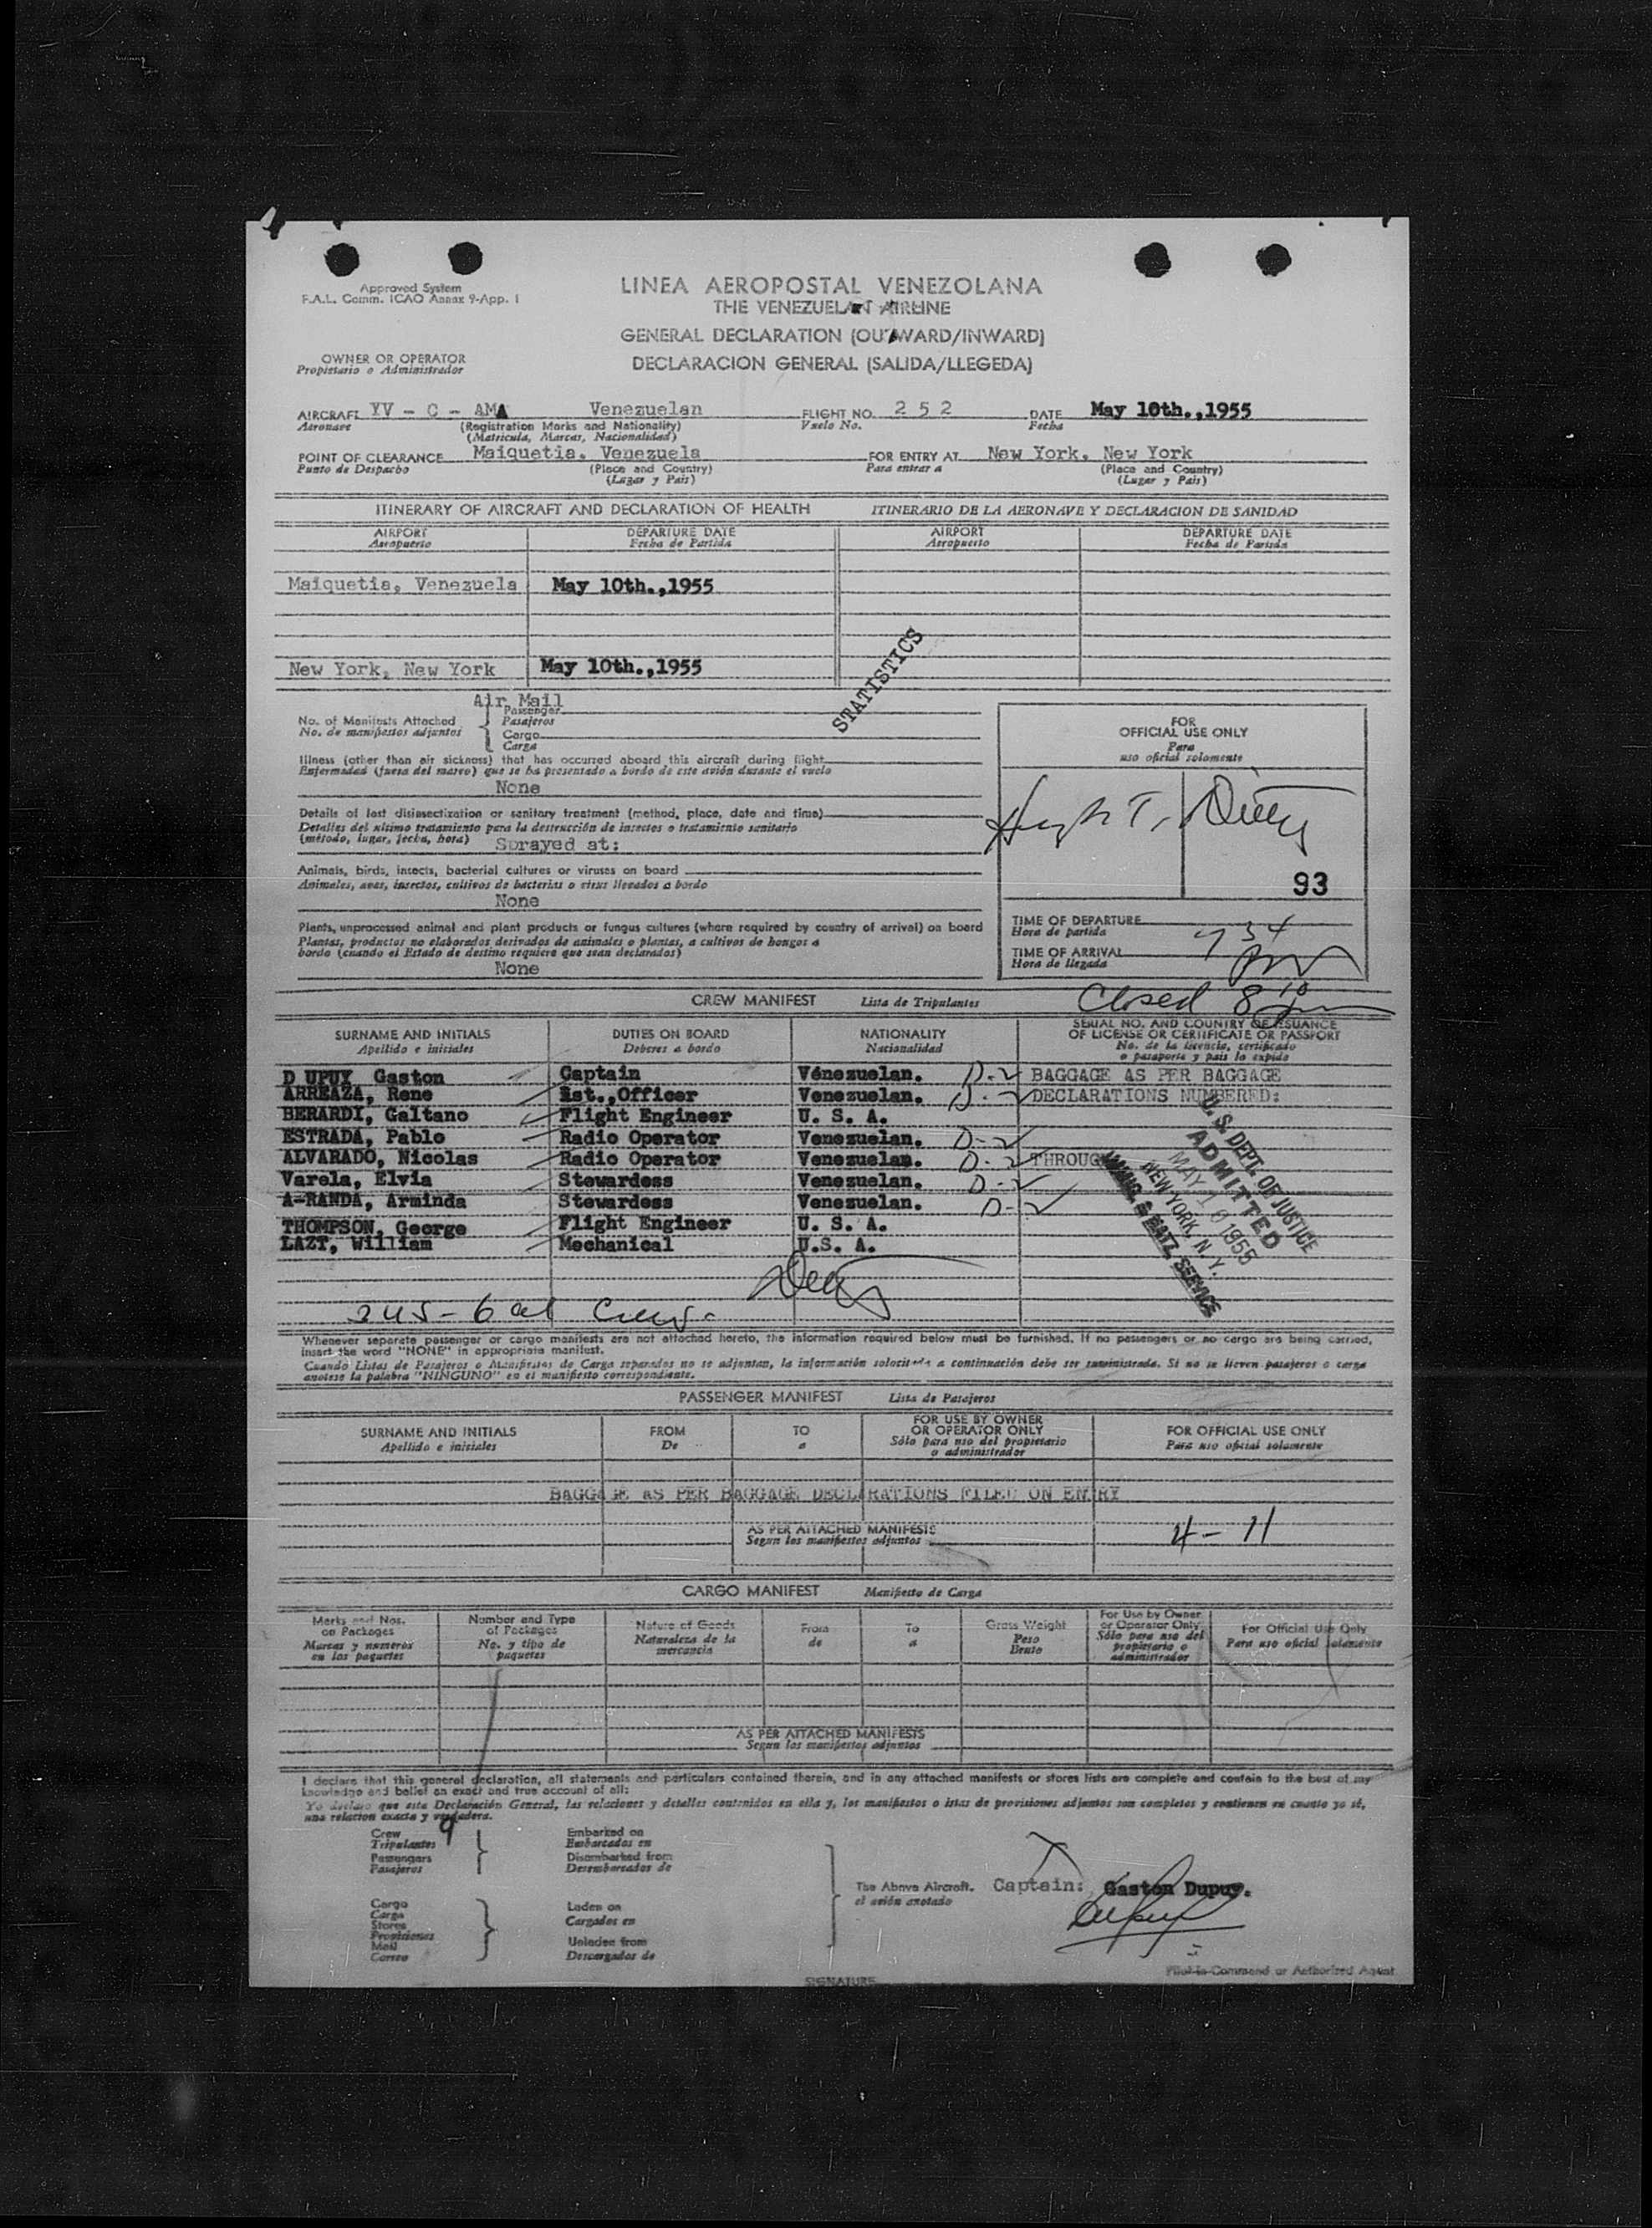 Approved System
F.A.L. Comm. ICAO Annex 9-App. 1
LINEA AEROPOSTAL VENEZOLANA
THE VENEZUELAN AIRLINE
GENERAL DECLARATION (OUTWARD/INWARD)
DECLARACION GENERAL (SALIDA/LLEGEDA)
OWNER OR OPERATOR
Propietario o Administrador
AIRCRAFT YV - C - AMA Venezuelan FLIGHT NO. 2 5 2 DATE May 10th.,1955
Aeronave (Registration Marks and Nationality) Vuelo No. Fecha
(Matricula, Marcas, Nacionalidad)
POINT OF CLEARANCE Maiquetia, Venezuela FOR ENTRY AT New York, New York
Punto de Despacho (Place and Country) Para entrar a (Place and Country)
(Lugar y Pais) (Lugar y Pais)
ITINERARY OF AIRCRAFT AND DECLARATION OF HEALTH ITINERARIO DE LA AERONAVE Y DECLARACION DE SANIDAD
AIRPORT DEPARTURE DATE AIRPORT DEPARTURE DATE
Aeropuerto Fecha de Partida Aeropuerto Fecha de Partida
Maiquetia, Venezuela May 10th.,1955
New York, New York May 10th.,1955
STATISTICS
Air Mail
No. of Manifests Attached Passenger
No. de manifiestos adjuntos Pasajeros
Cargo
Carga
FOR
OFFICIAL USE ONLY
Para
uso oficial solamente
Illness (other than air sickness) that has occurred aboard this aircraft during flight
Enfermedad (fuera del mareo) que se ha presentado a bordo de este avión durante el vuelo
None
Details of last disinsectization or sanitary treatment (method, place, date and time)
Detalles del ultimo tratamiento para la destrucción de insectos o tratamiento sanitario
(método, lugar, fecha, hora) Sprayed at:
Hugh T.
93
Animals, birds, insects, bacterial cultures or viruses on board
Animales, aves, insectos, cultivos de bacterias o virus llevados a bordo
None
Plants, unprocessed animal and plant products or fungus cultures (where required by country of arrival) on board
Plantas, productos no elaborados derivados de animales o plantas, a cultivos de hongos a
bordo (cuando el Estado de destino requiere que sean declarados)
None
TIME OF DEPARTURE
Hora de partida 7 34
TIME OF ARRIVAL pm
Hora de llegada
CREW MANIFEST Lista de Tripulantes Closed 8 10 pm
SURNAME AND INITIALS DUTIES ON BOARD NATIONALITY SERIAL NO. AND COUNTRY OF ISSUANCE
OF LICENSE OR CERTIFICATE OR PASSPORT
Apellido e iniciales Deberes a bordo Nacionalidad No. de la licencia, certificado
o pasaporte y pais lo expide
D UPUY, Gaston Captain Venezuelan. D-2 BAGGAGE AS PER BAGGAGE
ARREAZA, Rene 1st.,Officer Venezuelan. D-2 DECLARATIONS NUMBERED:
BERARDI, Galtano Flight Engineer U. S. A.
ESTRADA, Pablo Radio Operator Venezuelan. D-2
ALVARADO, Nicolas Radio Operator Venezuelan. D-2 THROUGH
Varela, Elvia Stewardess Venezuelan. D-2
A-RANDA, Arminda Stewardess Venezuelan. D-2
THOMPSON, George Flight Engineer U. S. A.
LAZT, William Mechanical U.S. A.
U. S. DEPT. OF JUSTICE
ADMITTED
MAY 10 1955
NEW YORK, N. Y.
IMMIG. & NATZ. SERVICE
Whenever separate passenger or cargo manifests are not attached hereto, the information required below must be furnished. If no passengers or no cargo are being carried,
insert the word "NONE" in appropriate manifest.
Cuando Listas de Pasajeros o Manifiestos de Carga separados no se adjuntan, la información solocitada a continuación debe ser suministrada. Si no se lleven pasajeros o carga
anotese la palabra "NINGUNO" en el manifiesto correspondiente.
PASSENGER MANIFEST Lista de Pasajeros
SURNAME AND INITIALS FROM TO FOR USE BY OWNER
OR OPERATOR ONLY FOR OFFICIAL USE ONLY
Apellido e iniciales De a Sólo para uso del propietario
o administrador Para uso oficial solamente
BAGGAGE AS PER BAGGAGE DECLARATIONS FILED ON ENTRY
AS PER ATTACHED MANIFESTS
Segun los manifiestos adjuntos
4 - 11
CARGO MANIFEST Manifiesto de Carga
Marks and Nos.
on Packages
Marcas y numeros
en los paquetes
Number and Type
of Packages
No. y tipo de
paquetes
Nature of Goods
Naturaleza de la
mercancia
From
de
To
a
Gross Weight
Peso
Bruto
For Use by Owner
or Operator Only
Sólo para uso del
propietario o
administrador
For Official Use Only
Para uso oficial solamente
AS PER ATTACHED MANIFESTS
Segun los manifiestos adjuntos
I declare that this general declaration, all statements and particulars contained therein, and in any attached manifests or stores lists are complete and contain to the best of my
knowledge and belief an exact and true account of all:
Yo declaro que esta Declaración General, las relaciones y detalles contenidos en ella y, los manifiestos o istas de provisiones adjuntos son completos y contienen en cuanto yo sé,
una relation exacta y verdadera.
Crew 9
Tripulantes
Passengers
Pasajeros
Embarked on
Embarcados en
Disembarked from
Desembarcados de
Cargo
Carga
Stores
Provisiones
Mail
Correo
Laden on
Cargados en
Unladen from
Descargados de
The Above Aircraft.
el avión anotado
Captain: Gaston Dupuy.
Dupuy
Pilot-in-Command or Authorized Agent
SIGNATURE